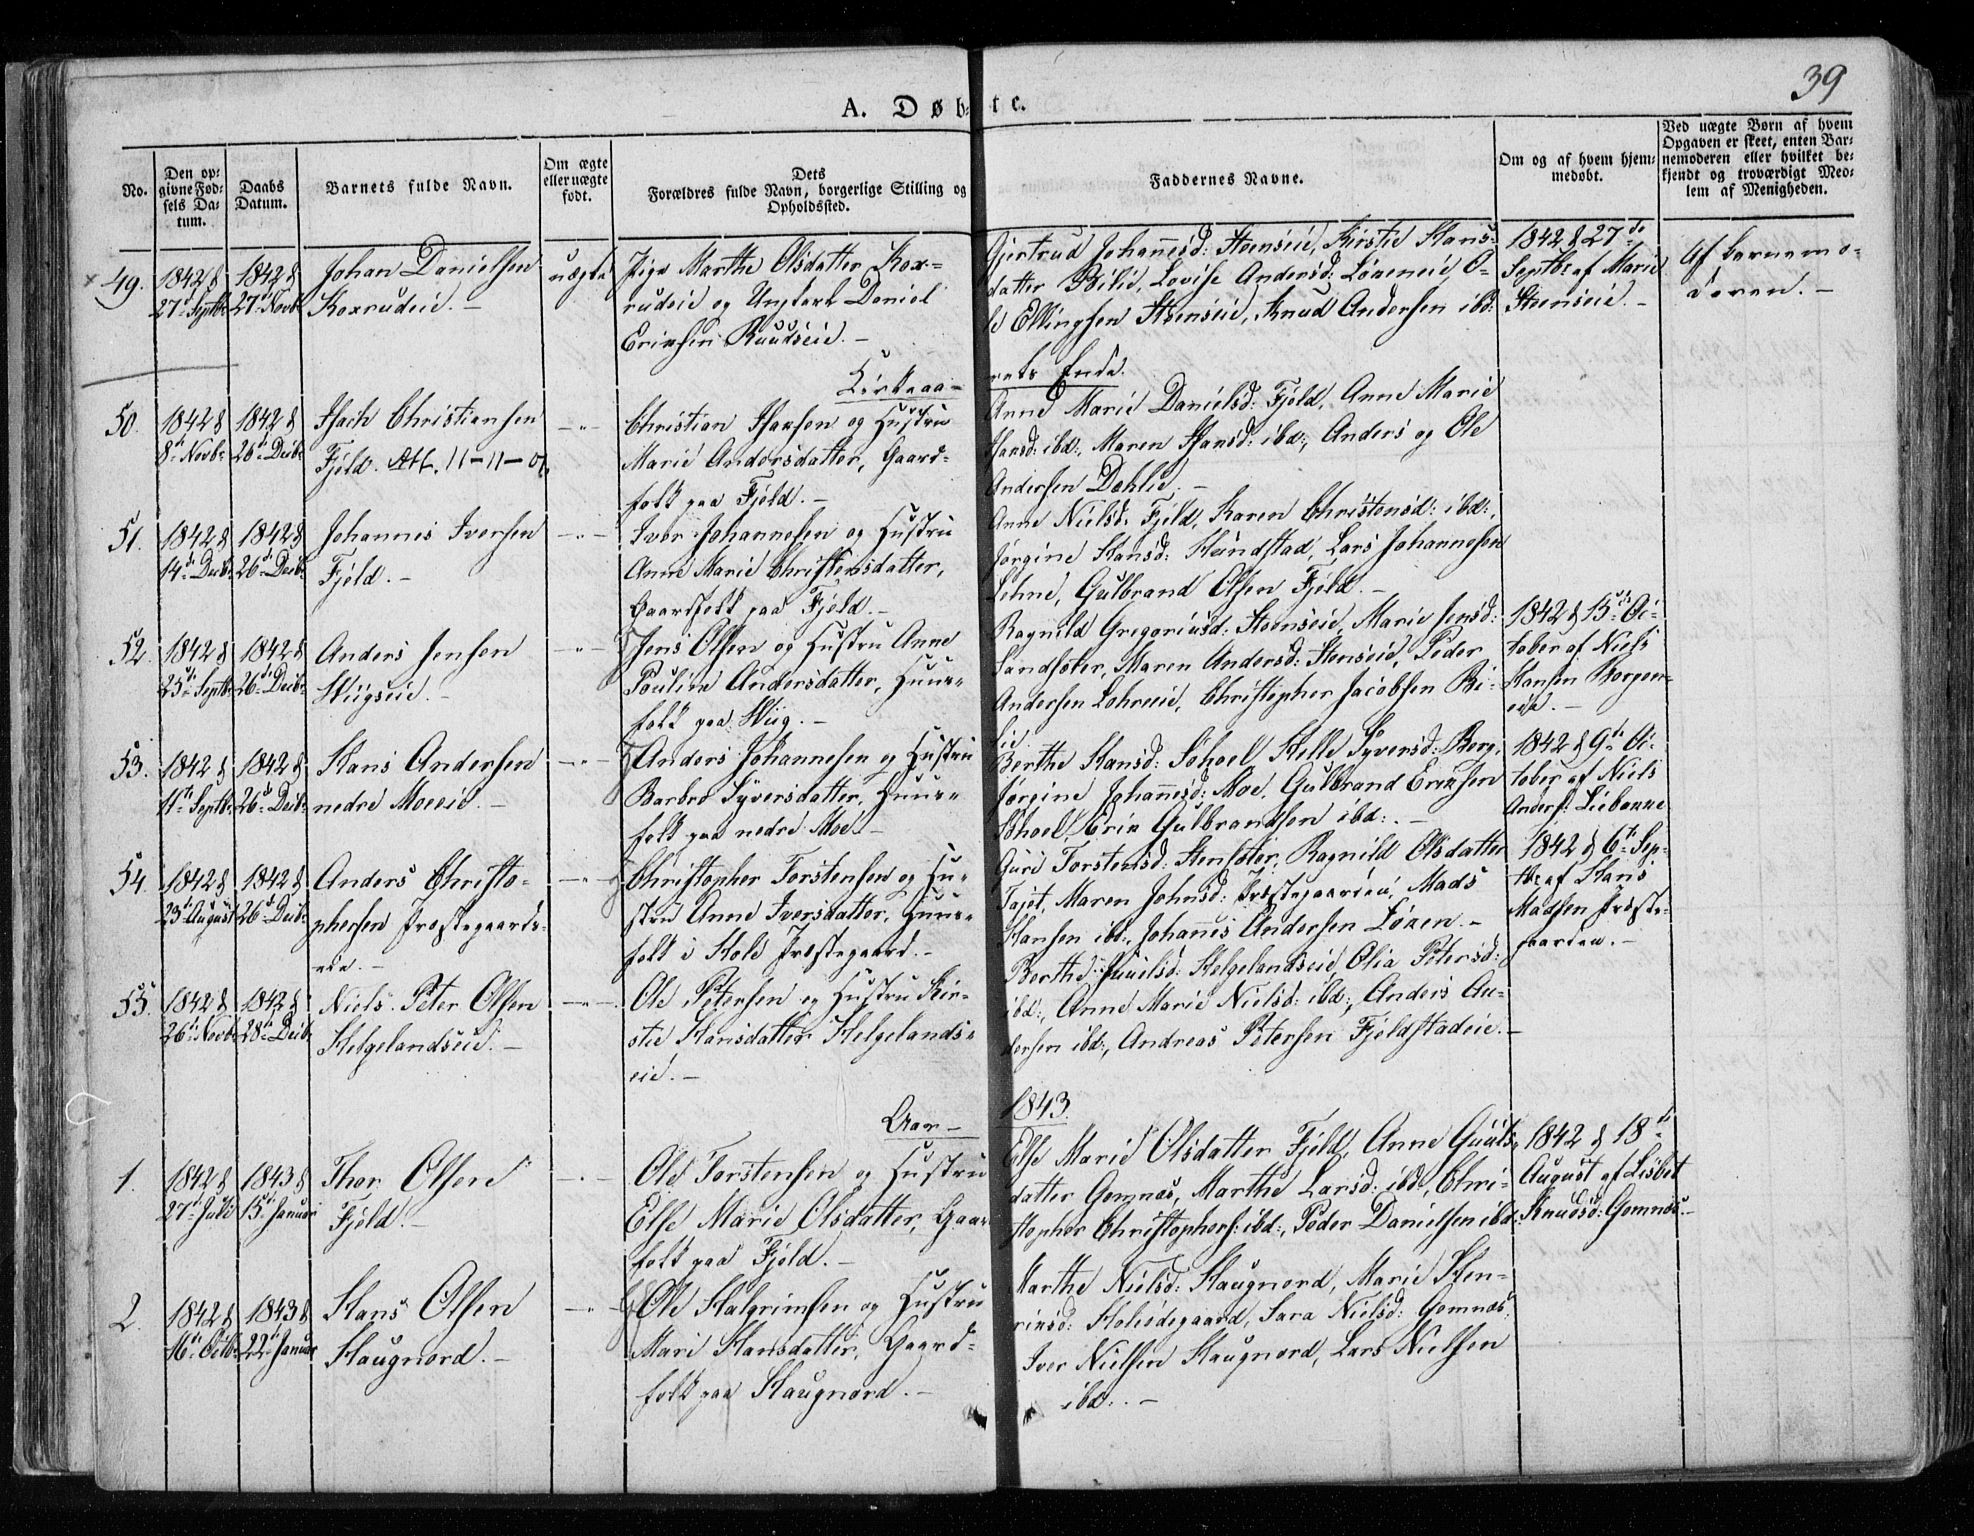 39
A. Døbte.
No.
Den op-
givne Fød-
sels Da-
tum.
Daabs
Datum.
Barnets fulde Navn.
Om ægte
eller uægte
født.
Dets
Forældres fulde Navn, borgerlige Stilling og
Opholdssted.
Faddernes Navne.
Om og af hvem hjem-
medøbt.
Ved uægte Børn af hvem
Opgaven er skeet, enten Bar-
nemoderen eller hvilket be-
kjendt og troværdigt Med-
lem af Menigheden.
49.
1842 d
27de Septbr
1842 d
27de Novbr
Johan Danielsen
Koxrudeie. -
uægte
Pige Marthe Olsdatter Kox-
rudeie og Ungkarl Daniel
Eriksen Ruudseie. -
Gjertrud Johannesd: Steenseie, Kirstie Hans-
datter Bilie, Lovise Andersd: Løkeneie, O-
le Ellingsen Steenseie, Knud Andersen ibd:
1842 d 27de
Septbr af Marie
Steenseie. -
Af barnemo-
deren. -
Kirkeaa-
rets Ende.
50.
1842 d
8de Novbr
1842 d
26de Decbr
Isach Christiansen
Fjeld. Att. 11-11-01.
Christian Isaksen og Hustru
Marie Andersdatter, Gaard-
folk paa Fjeld. -
Anne Marie Danielsd: Fjeld, Anne Marie
Hansd: ibd:, Maren Hansd: ibd:, Anders og Ole
Andersen Dehlie. -
51.
1842 d
14de Decbr
1842 d
26de Decbr
Johannes Iversen
Fjeld. -
Iver Johannesen og Hustru
Anne Marie Christensdatter,
Gaardfolk paa Fjeld. -
Anne Nielsd: Fjeld, Karen Christensd: ibd:,
Jørgine Hansd: Hundstad, Lars Johannesen
Lehne, Gulbrand Olsen Fjeld. -
52.
1842 d
25de Septbr
1842 d
26de Decbr
Anders Jensen
Wiigseie. -
Jens Olsen og Hustru Anne
Pauline Andersdatter, Huus-
folk paa Wiig. -
Ragnild Gregoriusd: Steenseie, Marie Jensd:
Sandsæter, Maren Andersd: Steenseie, Peder
Andersen Lehneeie, Christopher Jacobsen Bi-
lie.
1842 d 15de Oc-
tober af Niels
Hansen Borgen-
eie. -
53.
1842 d
11te Septbr
1842 d
26de Decbr
Hans Andersen
nedre Moeeie. -
Anders Johannesen og Hustru
Barbro Syversdatter, Huus-
folk paa nedre Moe -
Berthe Hansd: Søhoel, Helle Syversd: Berg,
Jørgine Johannesd: Moe, Gulbrand Eriksen
Søhoel, Erik Gulbrandsen ibd:. -
1842 d 9de Oc-
tober af Niels
Anders: Liebakke
54.
1842 d
23de August
1842 d
26de Decbr
Anders Christo-
phersen Præstegaards-
eie. -
Christopher Torstensen og Hu-
stru Anne Iversdatter, Huus-
folk i Hole Præstegaard. -
Guri Torstensd: Stensæter, Ragnild Olsdatter
Fajet, Maren Johnsd: Præstegaarden, Mads
Hansen ibd:, Johannes Andersen Løken. -
1842 d 6te Sep-
tbr af Hans
Madsen Præste-
gaarden. -
55.
1842 d
26de Novbr
1842 d
28de Decbr
Niels Peter Olsen
Helgelandseie. -
Ole Petersen og Hustru Kir-
stie Hansdatter Helgelands-
eie. -
Berthe Juuelsd: Helgelandseie, Olia Petersd:
ibd:, Anne Marie Nielsd: ibd:, Anders An-
dersen ibd:, Andreas Petersen Fjeldstadeie. -
Aar -
1843.
1.
1842 d
27de Juli
1843 d
15de Januar
Thor Olsen
Fjeld. -
Ole Torstensen og Hustru
Else Marie Olsdatter, Gaard-
folk paa Fjeld. -
Else Marie Olsdatter Fjeld, Anne Guuls-
datter Gomnæs, Marthe Larsd: ibd:, Chri-
stopher Christophers: ibd:, Peder Danielsen ibd:
1842 d 18de
August af Lisbet
Knudsd: Gomnæs. -
2.
1842 d
16de Octbr
1843 d
22de Januar
Hans Olsen
Haugnord. -
Ole Halgrimsen og Hustru
Mari Hansdatter, Gaard-
folk paa Haugnord. -
Marthe Nielsd: Haugnord, Marie Hen-
riksd: Holesdegaard, Sara Nielsd: Gomnæs,
Iver Nielsen Haugnord, Lars Nielsen
ibd:. -